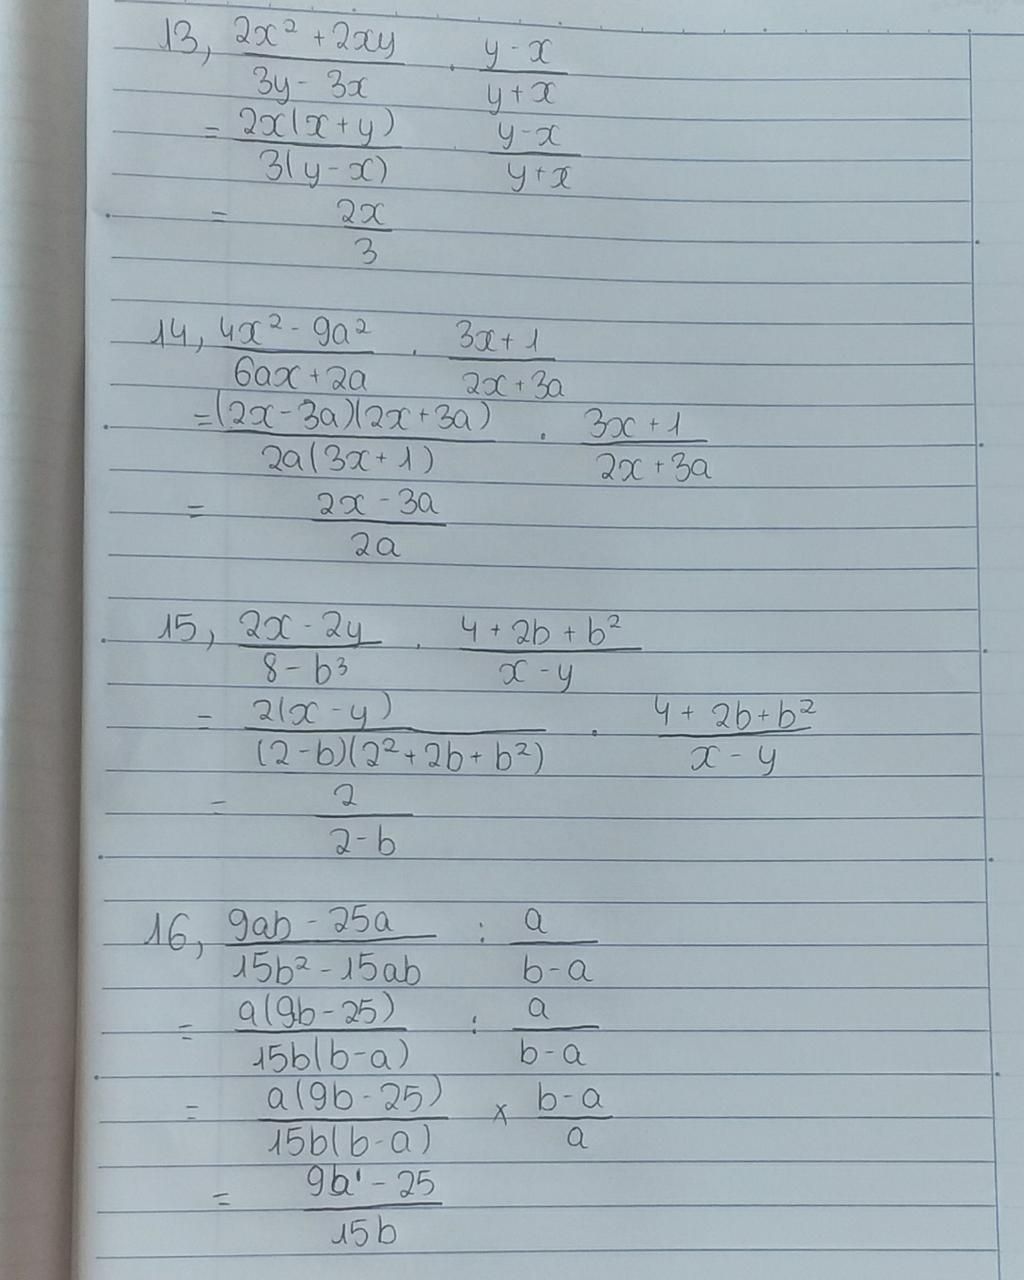 13, \frac{2x² + 2xy}{3y - 3x} . \frac{y - x}{y + x}
= \frac{2x(x + y)}{3(y - x)} . \frac{y - x}{y + x}
= \frac{2x}{3}
14, \frac{4x² - 9a²}{6ax + 2a} . \frac{3x + 1}{2x + 3a}
= \frac{(2x - 3a)(2x + 3a)}{2a(3x + 1)} . \frac{3x + 1}{2x + 3a}
= \frac{2x - 3a}{2a}
15, \frac{2x - 2y}{8 - b³} . \frac{4 + 2b + b²}{x - y}
= \frac{2(x - y)}{(2 - b)(2² + 2b + b²)} . \frac{4 + 2b + b²}{x - y}
= \frac{2}{2 - b}
16, \frac{9ab - 25a}{15b² - 15ab} : \frac{a}{b - a}
= \frac{a(9b - 25)}{15b(b - a)} : \frac{a}{b - a}
= \frac{a(9b - 25)}{15b(b - a)} × \frac{b - a}{a}
= \frac{9b - 25}{15b}